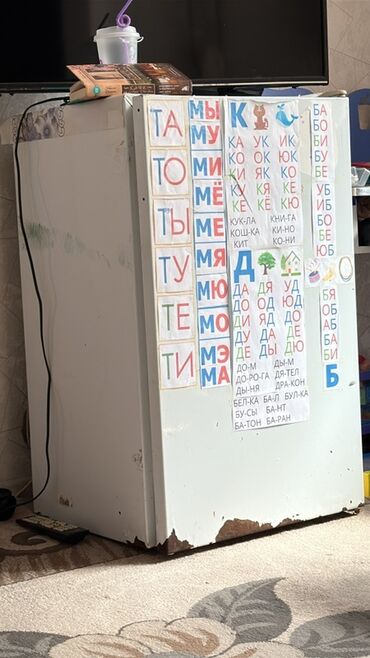 ТА
ТО
ТЫ
ТУ
ТЕ
ТИ
МЫ
МУ
МИ
МЁ
МЕ
МЯ
МЮ
МО
МЭ
МА
К
КА УК ИК
КО ОК ЮК
КИ ЯК КО
КУ КЯ КЕ
КЕ КЁ КЮ
КУК-ЛА КНИ-ГА
КОШ-КА КИ-НО
КИТ КО-НИ
Д
ДЕ ДЫ ДЮ
ДО-М ДЫ-М
ДО-РО-ГА ДЯ-ТЕЛ
ДЫ-НЯ ДРА-КОН
БЕЛ-КА БА-Л БУЛ-КА
БУ-СЫ БА-НТ
БА-ТОН БА-РАН
БА
БО
БИ
БУ
БЕ
УБ
ИБ
БО
БЕ
ЮБ
БЯ
ОБ
АБ
БА
БИ
Б